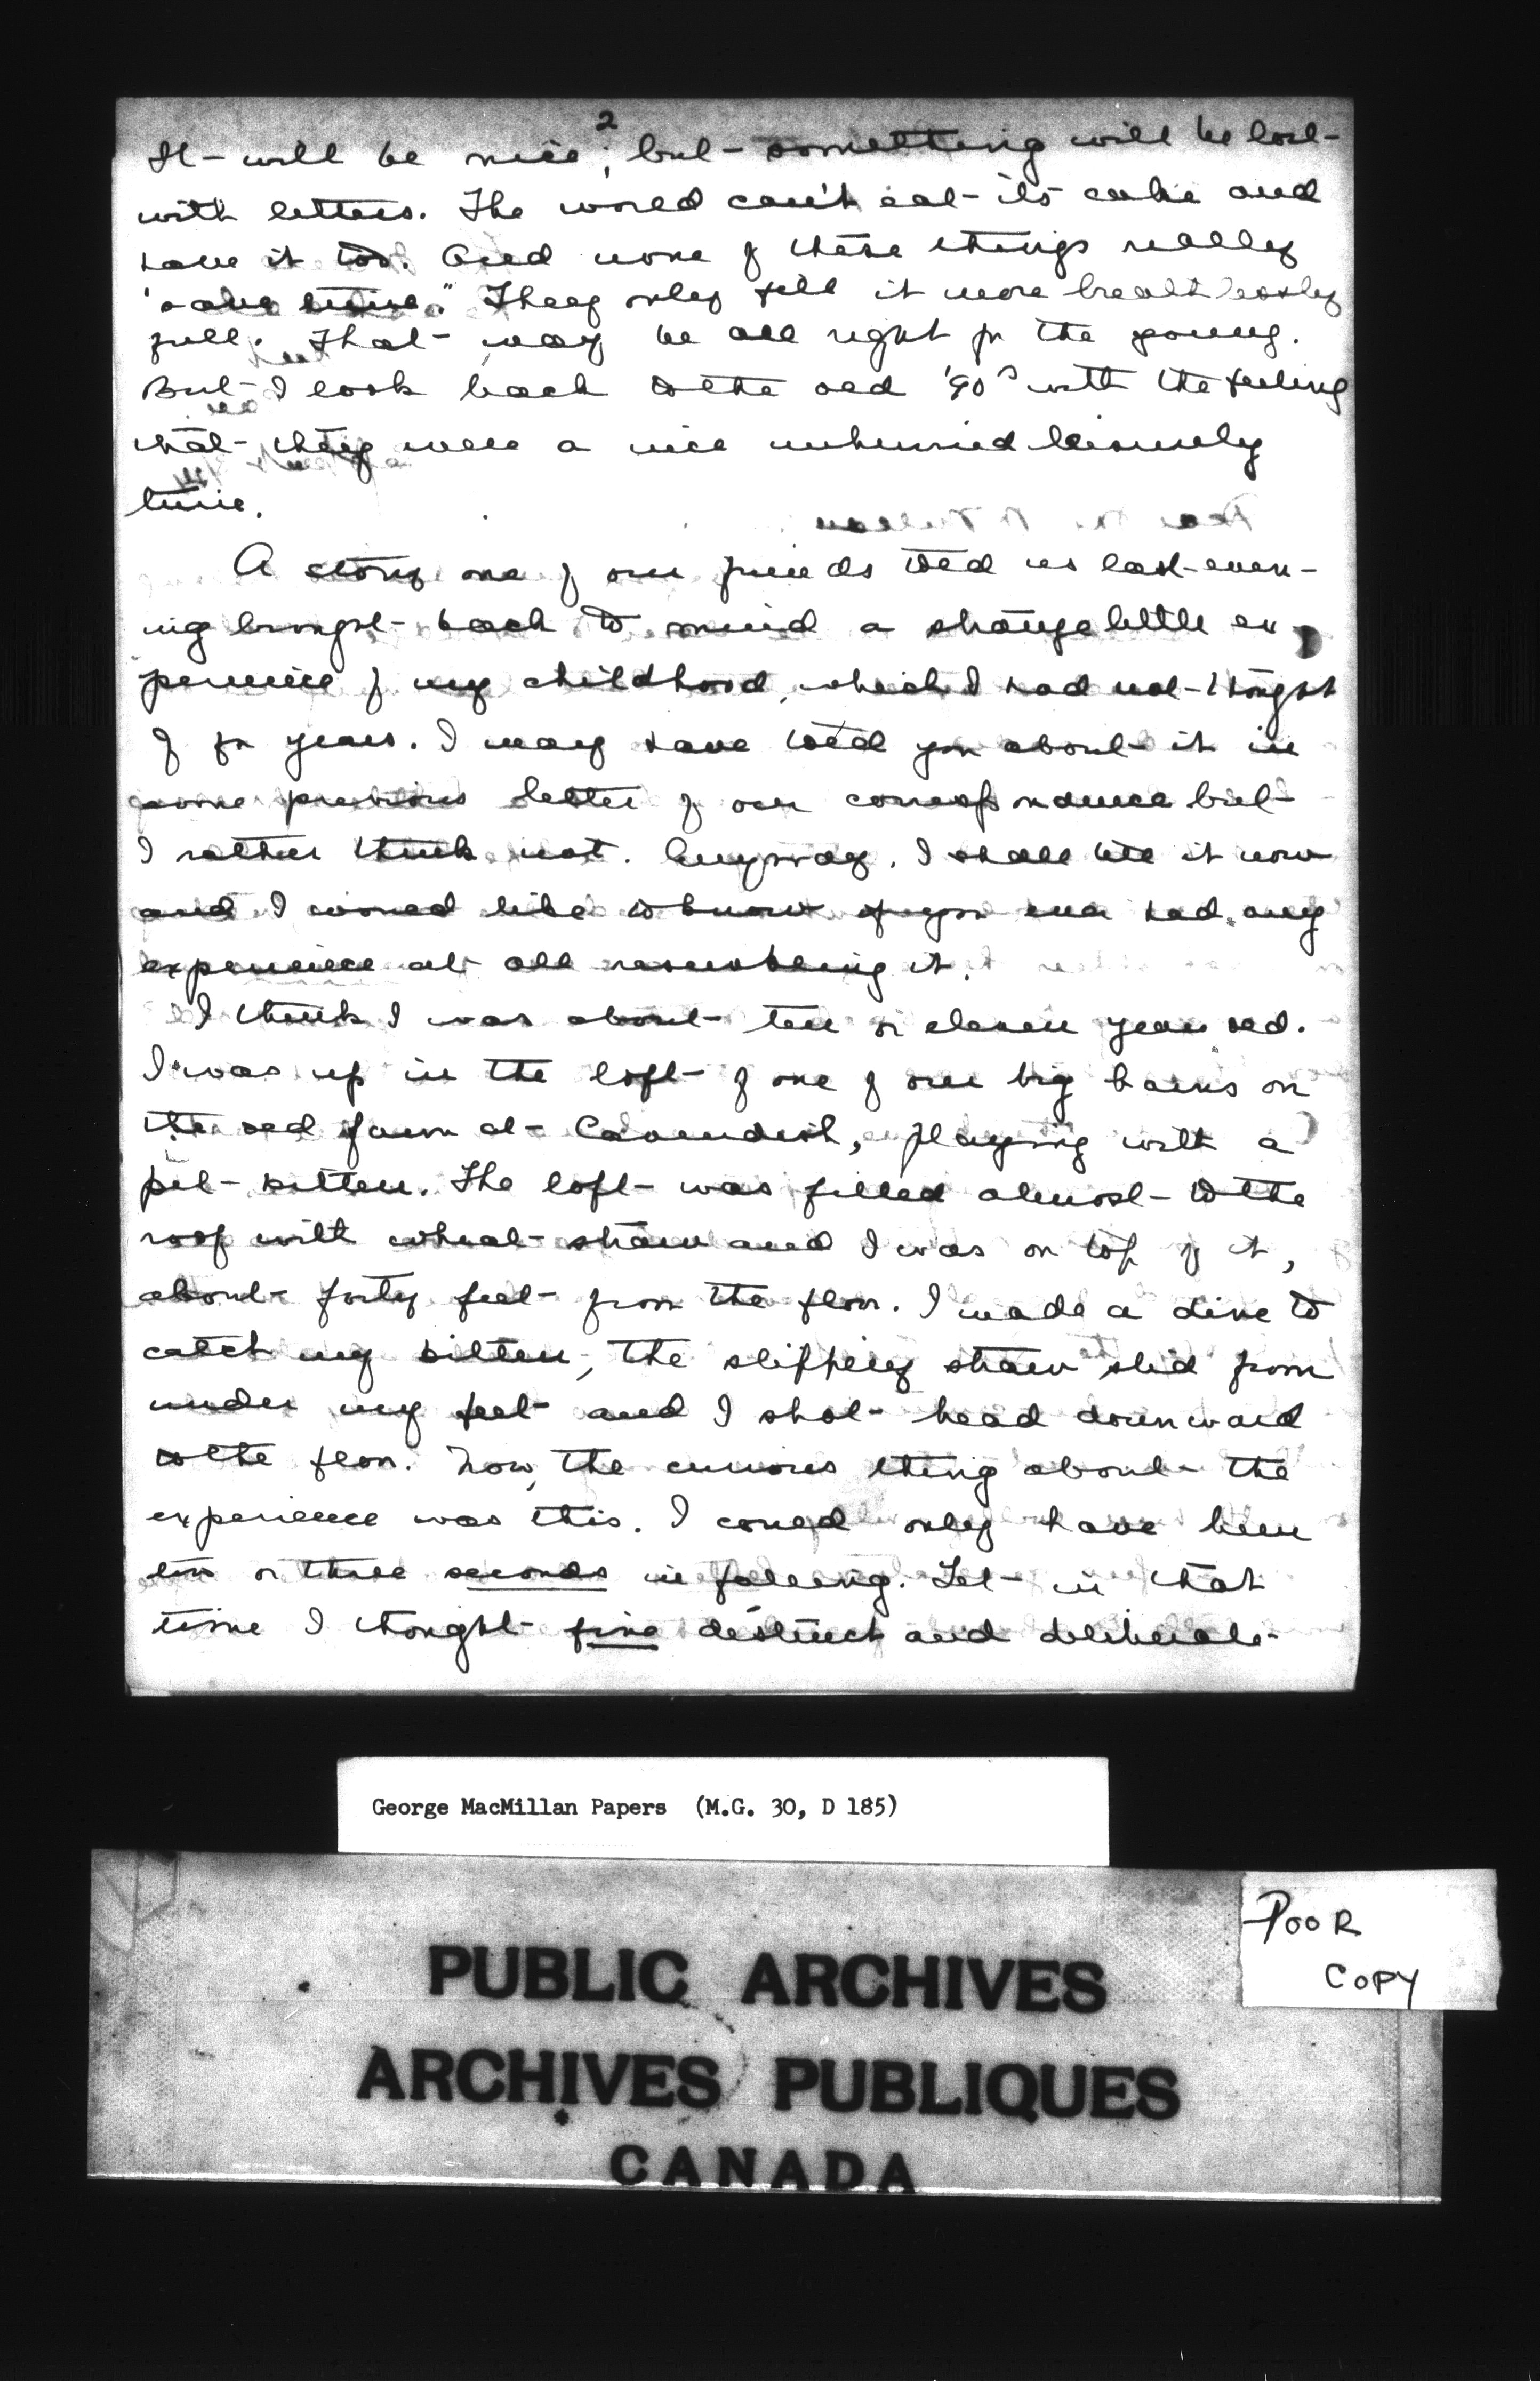 2
It will be nice, but something will be lost
with letters. The world can't eat its cake and
have it too. And none of these things really
"save time." They only fill it more breathlessly
full. That may be all right for the young.
But I look back to the old '90s with the feeling
that they were a nice unhurried leisurely
time.
A story one of our friends told us last even-
ing brought back to mind a strange little ex-
perience of my childhood, which I had not thought
of for years. I may have told you about it in
some previous letter of our correspondence but
I rather think not. Anyway, I shall tell it now
and I would like to know if you ever had any
experience at all resembling it.
I think I was about ten or eleven years old.
I was up in the loft of one of our big barns on
the old farm at Cavendish, playing with a
pet kitten. The loft was filled almost to the
roof with wheat straw and I was on top of it,
about forty feet from the floor. I made a dive to
catch my kitten, the slippery straw slid from
under my feet and I shot head downward
to the floor. Now, the curious thing about the
experience was this. I could only have been
two or three seconds in falling. Yet in that
time I thought five distinct and deliberate
George MacMillan Papers (M.G. 30, D 185)
POOR
COPY
PUBLIC ARCHIVES
ARCHIVES PUBLIQUES
CANADA